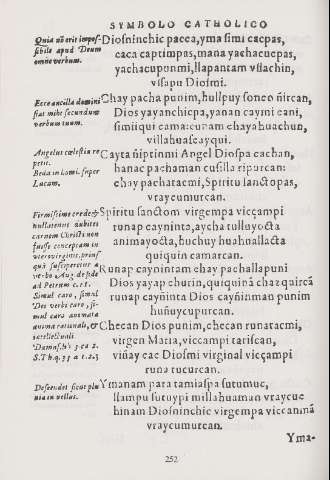 SYMBOLO CATHOLICO
Quia nō erit impos-
sibile apud Deum
omne verbum.
Diosninchic pacca, yma simi cacpas,
caca captimpas, mana yachacuepas,
yachacuponmi, llapantam vllachin,
vllapu Diosmi.
Ecce ancilla domini
fiat mihi secundum
verbum tuum.
Chay pacha punim, hullpuy sonco ñircan,
Dios yayanchicpa, yanan caymi cani,
simiiqui camacunam chayahuachun,
villahuascayqui.
Angelus cælestia re
petit.
Beda in homi. super
Lucam.
Cayta ñiptinmi Angel Diospa cachan,
hanac pachaman cusilla riparcan:
chay pachatacmi, Spiritu sanctopas,
vraycumurcan.
Firmissime crede &
nullatenus dubites
carnem Christi non
fuisse conceptam in
vtero virginis, prius
quā susciperetur a
verbo Aug. de fide
ad Petrum c.18.
Simul caro, simul
Dei verbi caro, si-
mul caro animata
anima rationali, &
intellectuali
Damas. li. 3. ca 2.
S. Th. q. 33 a 1.2.3
Spiritu sanctom virgempa vicçampi
runap cayninta, aycha tulluyocta
animayocta, huchuy huahuallacta
quiquin camarcan.
Runap caynintam chay pachallapuni
Dios yayap churin, quiquinā chazqaircā
runap cayñinta Dios cayñinman punim
huñuycupurcan.
Checan Dios punim, checan runatacmi,
virgen Maria, viccampi tarilcan,
viñay cac Diosmi virginal vicçampi
runa tucurcan.
Descendet sicut plu
uia in vellus.
Ymanam para tamiaspa sutumuc,
llampu sutuypi millahuaman vraycuc
hinam Diosninchic virgempa viccanmā
vraycumurcan.
Yma-
252